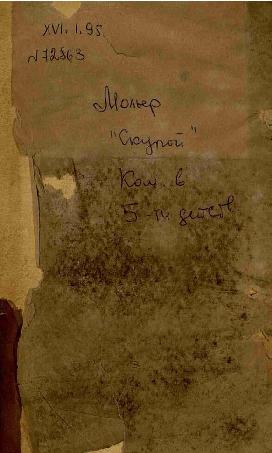 XVI. 1.95
N72863
Мольер
"Скупой"
Ком. в
5-ти действ